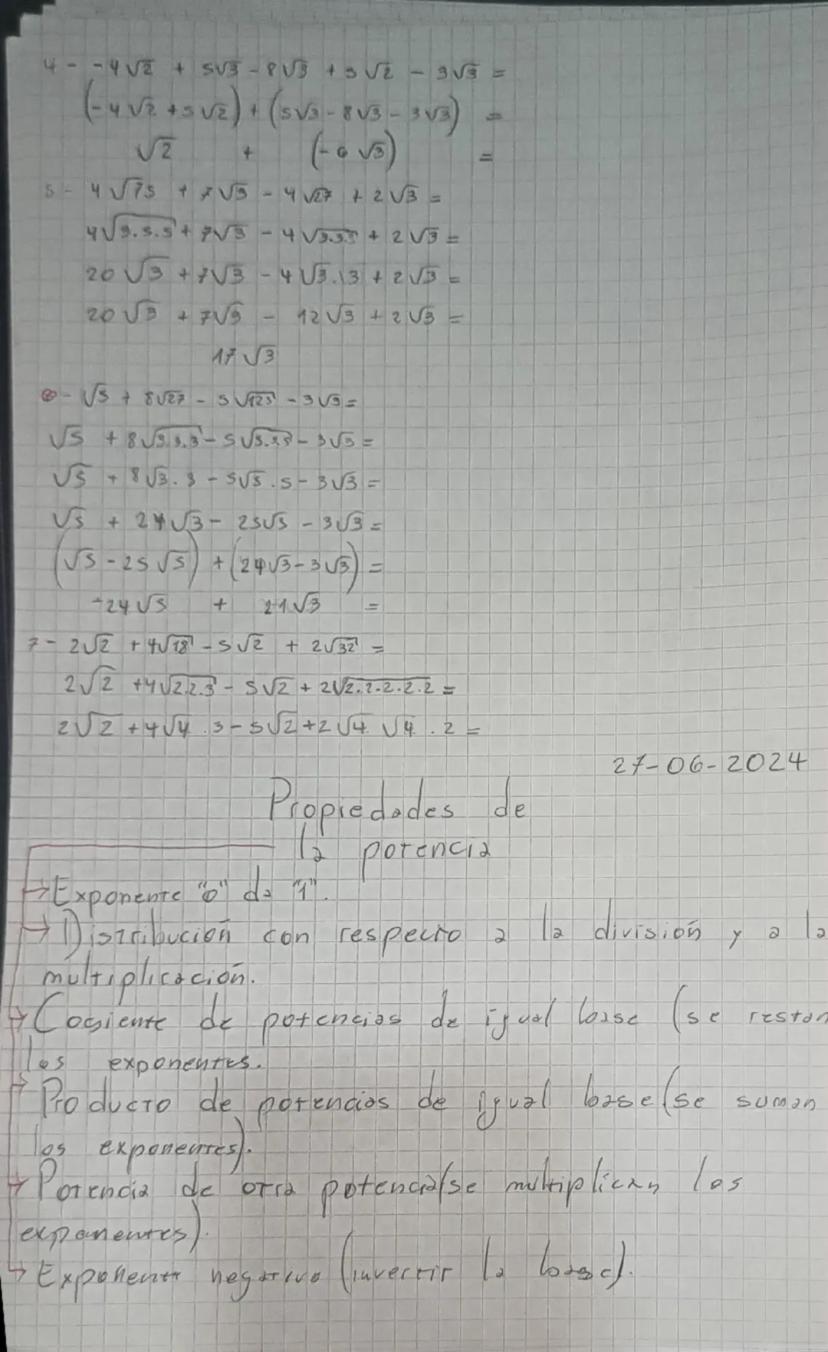 4 - -4√2 + 5√3 - 8√3 + 5√2 - 3√3 =
(-4√2 + 5√2) + (5√3 - 8√3 - 3√3) =
√2 + (-6√3) =
5 - 4√75 + 7√3 - 4√27 + 2√3 =
4√3.5.5 + 7√3 - 4√3.3.3 + 2√3 =
20√3 + 7√3 - 4√3.13 + 2√3 =
20√3 + 7√3 - 12√3 + 2√3 =
17√3
6 - √5 + 8√27 - 5√125 - 3√3 =
√5 + 8√3.3.3 - 5√5.5.5 - 3√3 =
√5 + 8√3.3 - 5√5.5 - 3√3 =
√5 + 24√3 - 25√5 - 3√3 =
(√5 - 25√5) + (24√3 - 3√3) =
-24√5 + 21√3 =
7 - 2√2 + 4√18 - 5√2 + 2√32 =
2√2 + 4√2.2.3 - 5√2 + 2√2.2.2.2.2 =
2√2 + 4√4 .3 - 5√2 + 2√4 √4 . 2 =
27-06-2024
Propiedades de
la potencia
Exponente "0" da "1".
Distribución con respecto a la división y a la
multiplicación.
Cosiente de potencias de igual base (se restan
los exponentes.
Producto de potencias de igual base (se suman
los exponentes).
Potencia de otra potencia (se multiplican los
exponentes).
Exponente negativo (invertir la base).